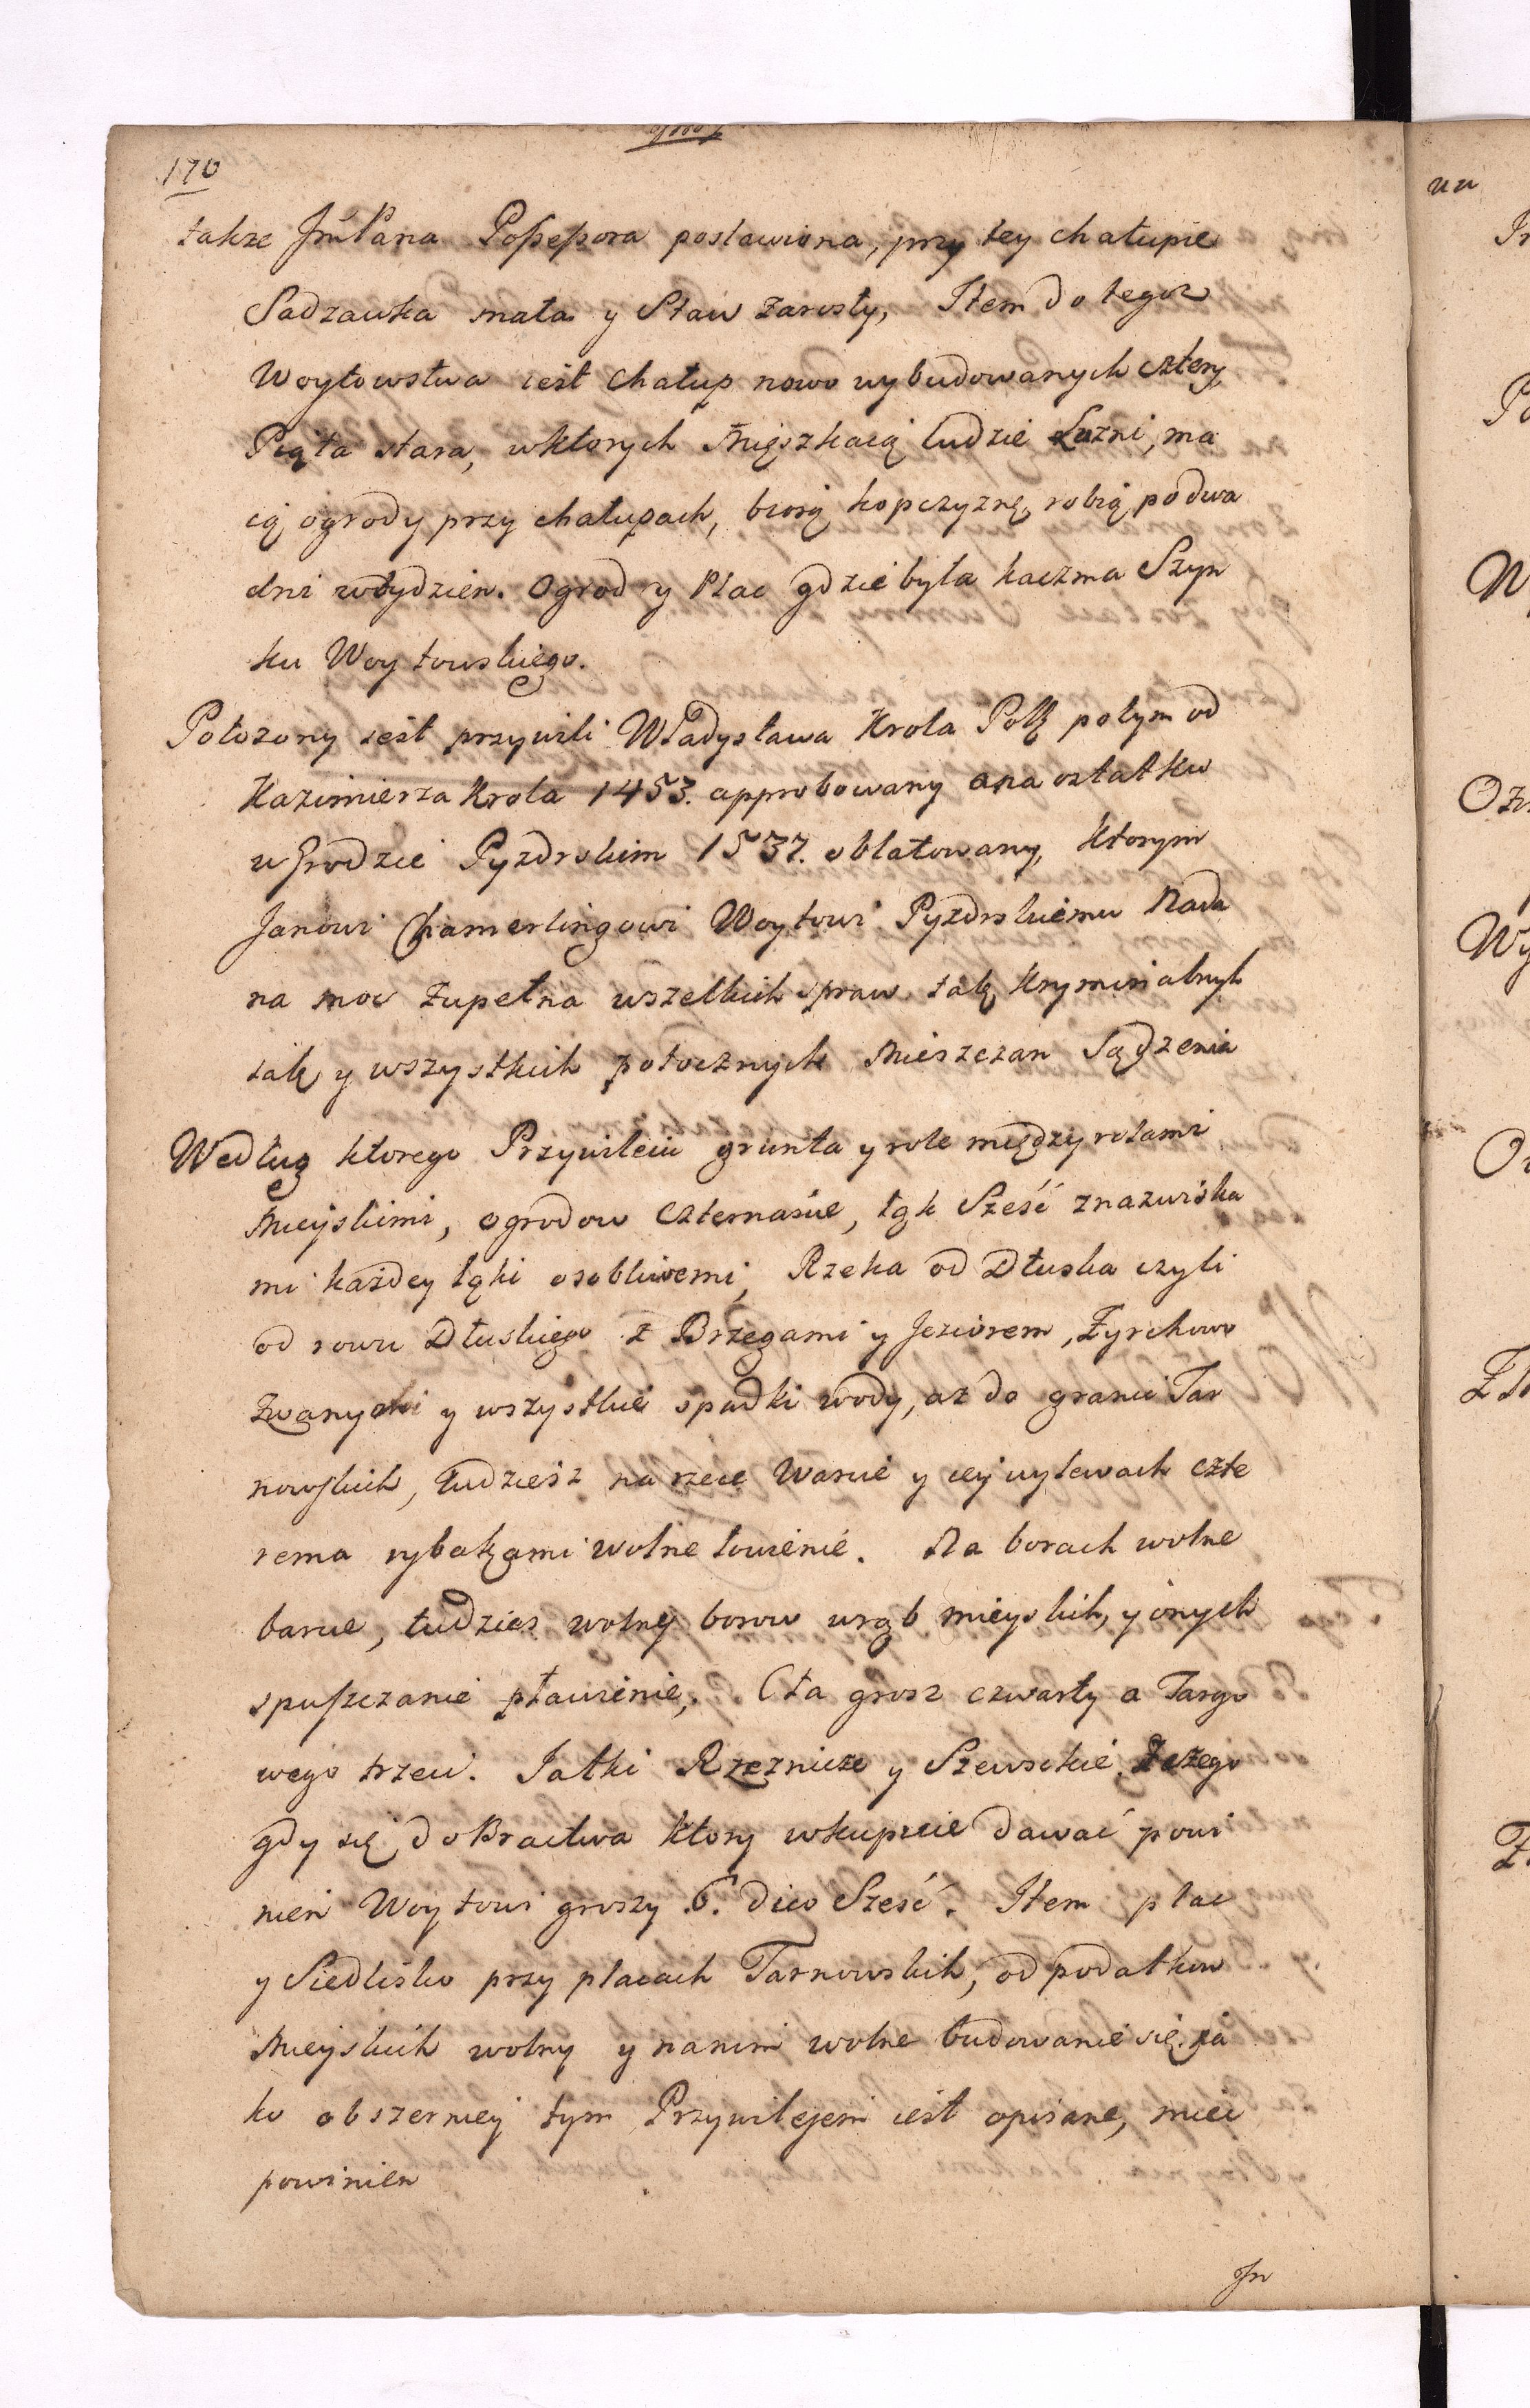 170
także JmPana Possessora postawiona, przy tey chałupie
Sadzawka mała y Staw zarosły, Item do tegoz
Woytowstwa iest chałup nowo wybudowanych cztery,
Piąta stara, wktorych Mięszkaią ludzie Luzni, ma
ią ogrody przy chałupach, biorą kopczyznę, robią podwa
dni wtydzien. Ogrod y Plac gdzie była kaczma Szyn
ku Woytowskiego.
Położony iest przywili Władysława Krola Polk potym od
Kazimierza Krola 1453. approbowany ana ostatku
w Grodzie Pyzdrskim 1537. oblatowany, ktorym
Janowi Chamerlingowi Woytowi Pyzdrskiemu Nada
na moc zupełna wszelkich spraw, tak kryminalnych
iak y wszystkich potocznych Mieszczan Sądzenia
Według ktorego Przywileiu grunta y role między rolami
Mieyskiemi, ogrodow czternascie, łąk Sześć znazwiska
mi każdey łąki osobliwemi, Rzeka od Dłuska czyli
od rowu Dłuskiego z Brzegami y Jeziorem, Zyrchowo
Zwanymi y wszystkie spadki wody, aż do granic Tar
nowskich, tudziesz na rzece Warcie y iey wylewach czte
rema rybakami wolne łowienie. Na borach wolne
barcie, tudzies wolny borow wrąb mieyskich, y onych
spuszczanie pławienie, Cła grosz czwarty a Targo
wego trzeci. Jatki Rzeznicze y Szewskie,
gdy się do Bractwa ktory wkupuie dawać powi
nien Woytowi groszy 6. dico Sześć. Item plac
y Siedlisko przy placach Tarnowskich, od podatkow
Mieyskich wolny y nanim wolne budowanie się, ia
ko obszerniey tym Przywilejem iest opisane, mieć
powinien
Jn